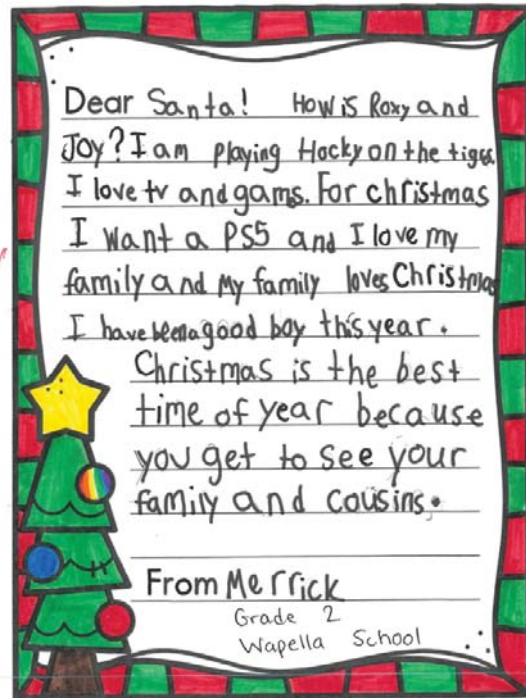 Dear Santa! How is Roxy and
Joy? I am playing Hocky on the tigers.
I love tv and gams. For christmas
I want a PS5 and I love my
family and My family loves Christmas
I have been a good boy this year.
Christmas is the best
time of year because
you get to see your
family and cousins.
From Merrick
Grade 2
Wapella School